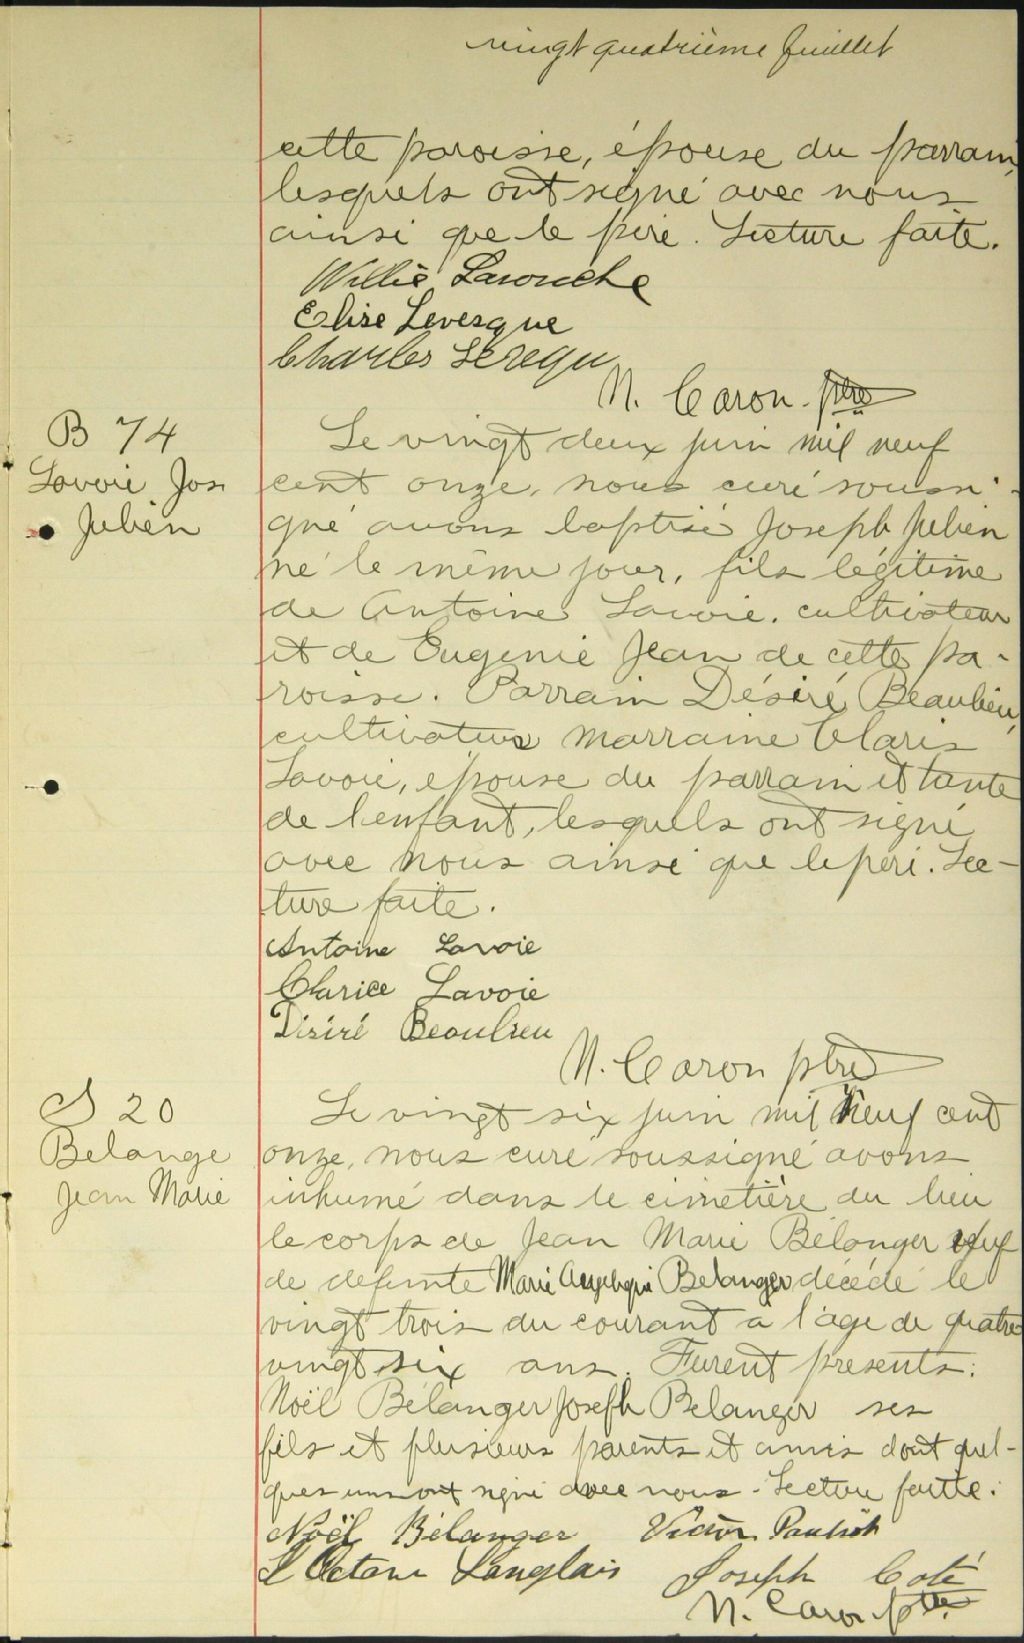 vingt quatrième feuillet
cette paroisse, épouse du parrain,
lesquels ont signé avec nous
ainsi que le père. Lecture faite.
Willie Larouche
Elise Levesque
Charles
N. Caron ptre
B 74
Lavoie Jos
Julien
Le vingt deux juin mil neuf
cent onze, nous curé soussi-
gné avons baptisé Joseph Julien
né le même jour, fils légitime
de Antoine Lavoie, cultivateur
et de Eugenie Jean de cette pa-
roisse. Parrain Désiré Beaulieu,
cultivateur marraine Claris
Lavoie, épouse du parrain et tante
de l'enfant, lesquels ont signé
avec nous ainsi que le père. Lec-
ture faite.
Antoine Lavoie
Clarice Lavoie
Désiré Beaulieu
N. Caron ptre
S 20
Belange
Jean Marie
Le vingt six juin mil neuf cent
onze, nous curé soussigné avons
inhumé dans le cimetière du lieu
le corps de Jean Marie Bélanger veuf
de defunte Marie Belanger décédé le
vingt trois du courant a l'age de quatre
vingt six ans. Furent presents:
Noël Bélanger Joseph Belanger ses
fils et plusieurs parents et amis dont quel-
ques uns ont signé avec nous - Lecture faitte.
Noël Bélanger Victor
Octave Langlais Joseph Coté
N. Caron ptre